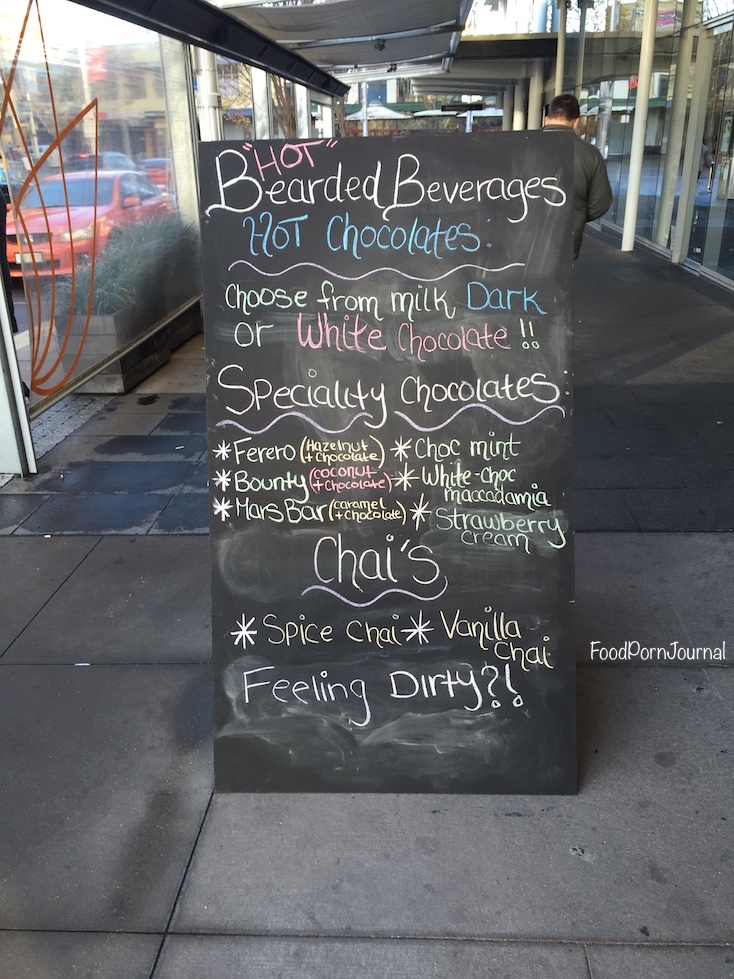 "HOT"
Bearded Beverages
HOT Chocolates:
Choose from milk Dark
or White Chocolate !!
Speciality Chocolates:
* Ferero (Hazelnut + Chocolate) * Choc mint
* Bounty (coconut + Chocolate) * White-choc macadamia
* Mars Bar (caramel + Chocolate) * Strawberry cream
Chai's
* Spice Chai * Vanilla Chai
Feeling Dirty?!
FoodPornJournal